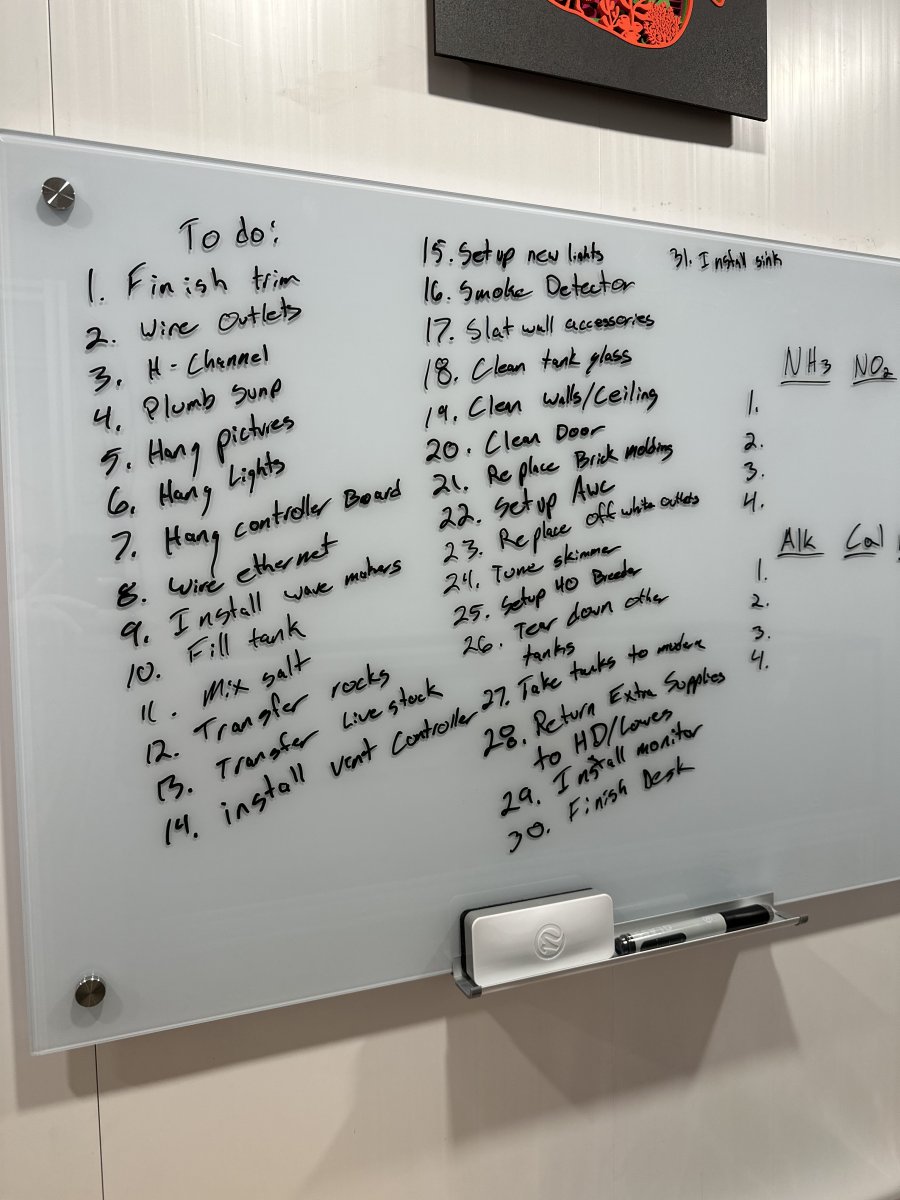 To do:
1. Finish trim
2. Wire Outlets
3. H-Channel
4. Plumb Sump
5. Hang pictures
6. Hang Lights
7. Hang controller Board
8. Wire ethernet
9. Install wave makers
10. Fill tank
11. Mix salt
12. Transfer rocks
13. Transfer Livestock
14. install vent Controller
15. Setup new lights
16. Smoke Detector
17. Slat wall accessories
18. Clean tank glass
19. Clean walls/Ceiling
20. Clean Door
21. Replace Brick molding
22. Setup AWC
23. Replace off white outlets
24. Tune skimmer
25. Setup 40 Breeder
26. Tear down other
tanks
27. Take tanks to modern
28. Return Extra Supplies
to HD/Lowes
29. Install monitor
30. Finish Desk
31. Install sink
NH3 NO2
1.
2.
3.
4.
Alk Cal
1.
2.
3.
4.